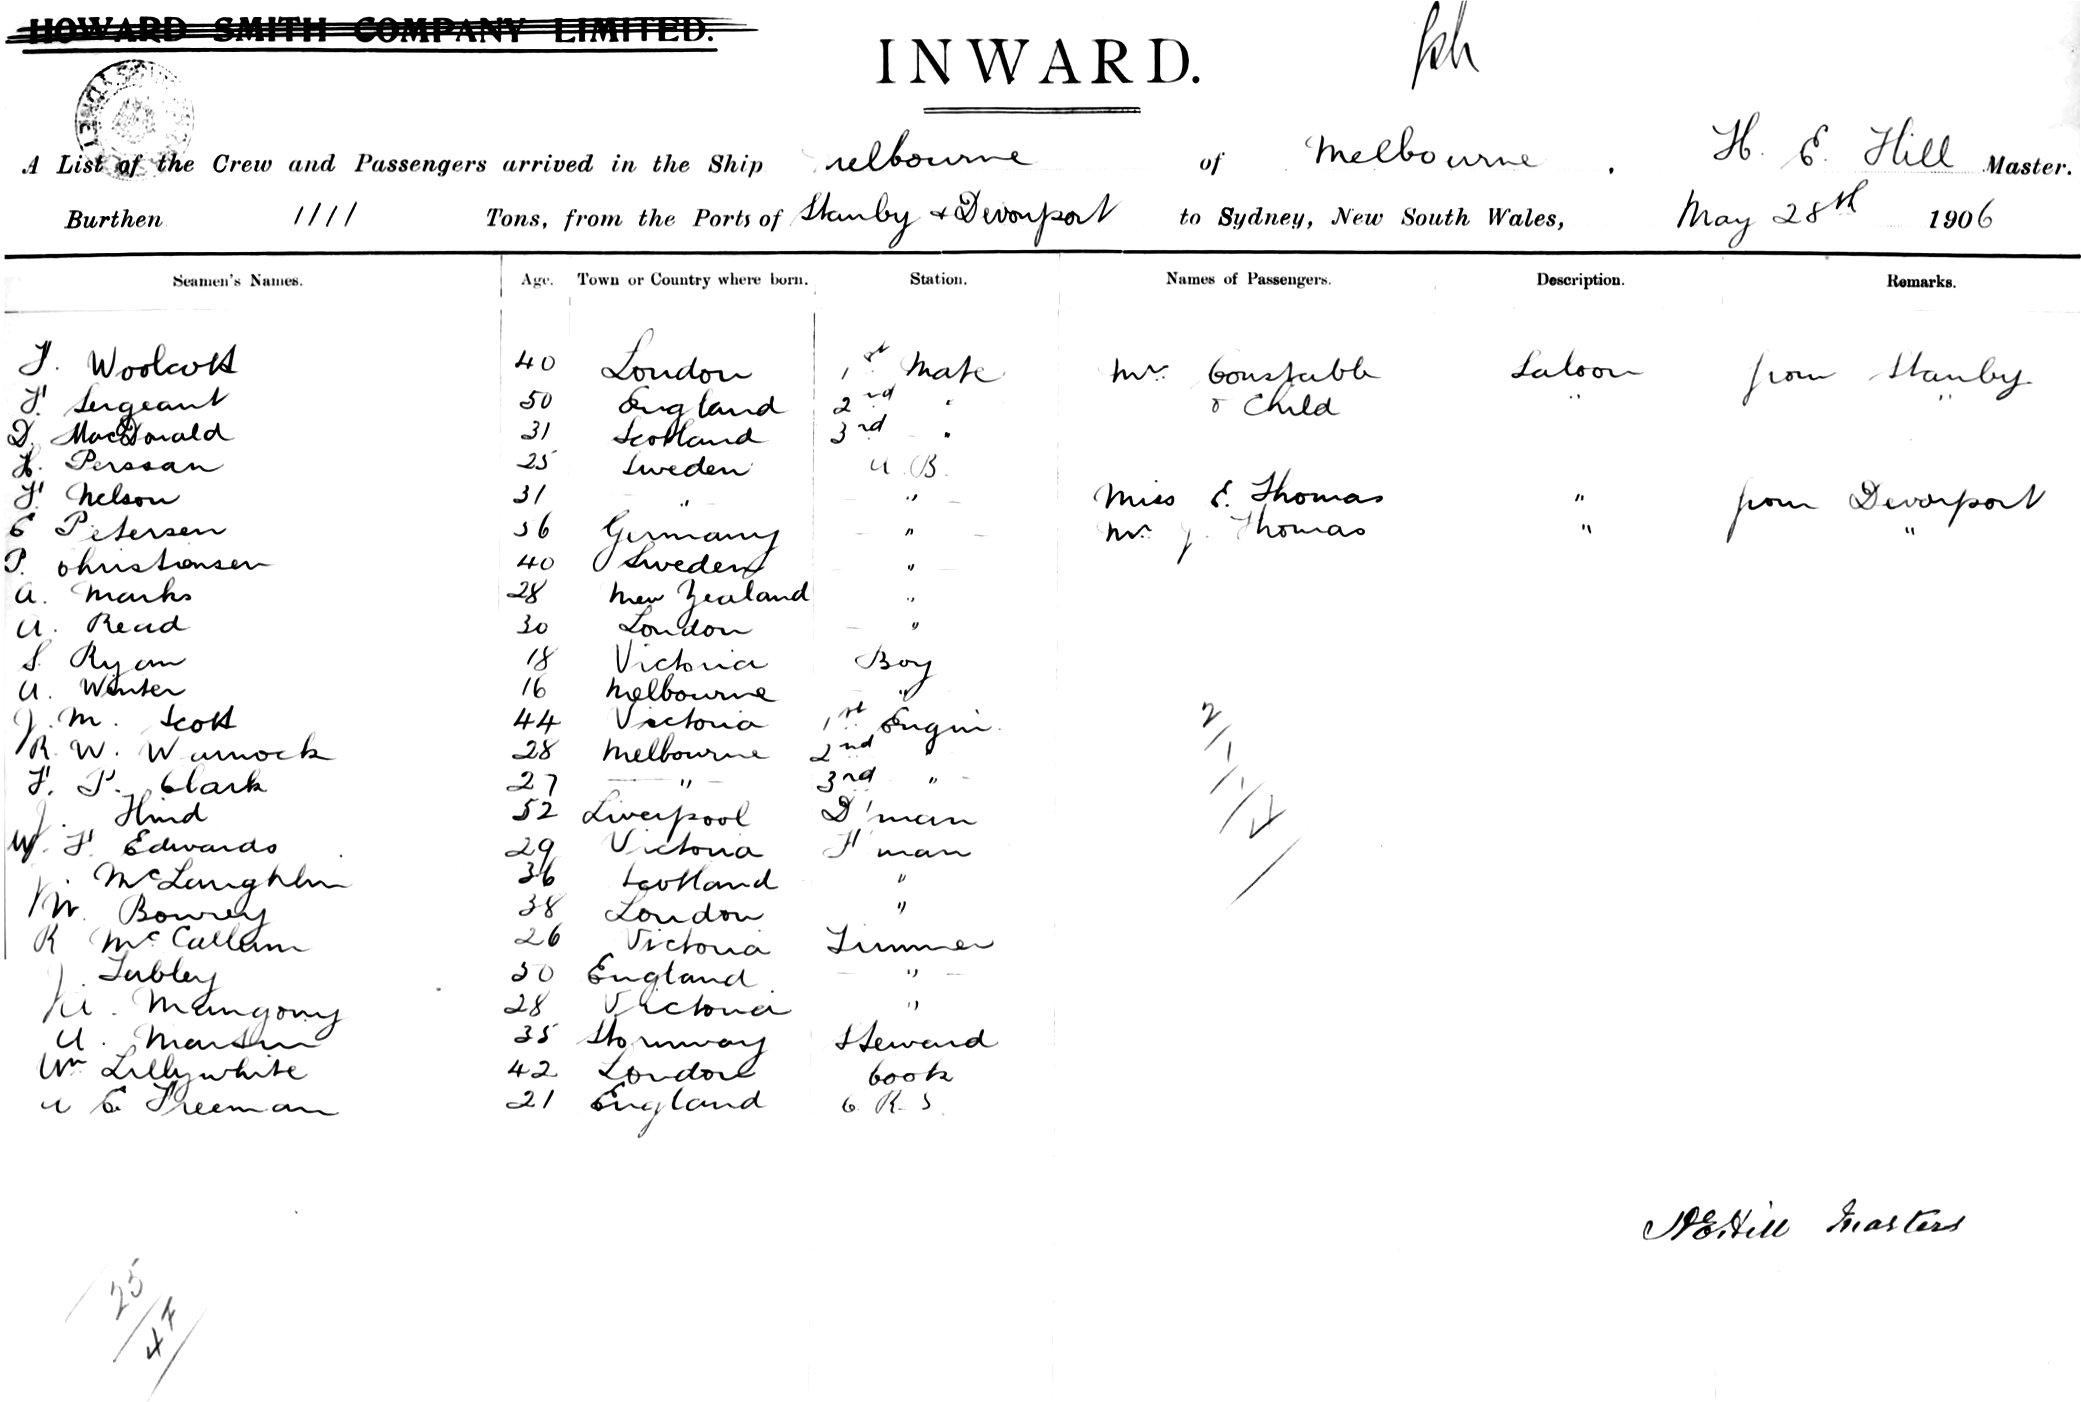 HOWARD SMITH COMPANY LIMITED.
INWARD.
A List of the Crew and Passengers arrived in the Ship elbourne of Melbourne, H. E. Hill Master.
Burthen 1111 Tons, from the Ports of Stanley & Devonport to Sydney, New South Wales, May 28th 1906
Seamen's Names. Age. Town or Country where born. Station. Names of Passengers. Description. Remarks.
F. Woolcott 40 London 1st Mate Mr Constable Saloon from Stanley
F. Sergeant 50 England 2nd " & Child " "
D. MacDonald 31 Scotland 3rd "
H. Perssan 25 Sweden A. B.
F. Nelson 31 " " Miss E. Thomas " from Devonport
C Petersen 36 Germany " Mr J. Thomas " "
P. Christensen 40 Sweden "
A. Marks 28 New Zealand "
A. Read 30 London "
S. Ryan 18 Victoria Boy
A. Winter 16 Melbourne "
J. M. Scott 44 Victoria 1st Engin.
R. W. Warnock 28 Melbourne 2nd "
F. P. Clark 27 " 3rd "
J. Hind 52 Liverpool D'man
W. F. Edwards 29 Victoria F'man
McLaughlin 36 Scotland "
W. Bowrey 38 London "
R McCallum 26 Victoria Trimmer
J. Tubley 50 England "
Mangony 28 Victoria "
A. Martin 35 Stornway Steward
Wm Lillywhite 42 London Cook
A E Freeman 21 England C. R. S.
H E Hill Masters
25
47